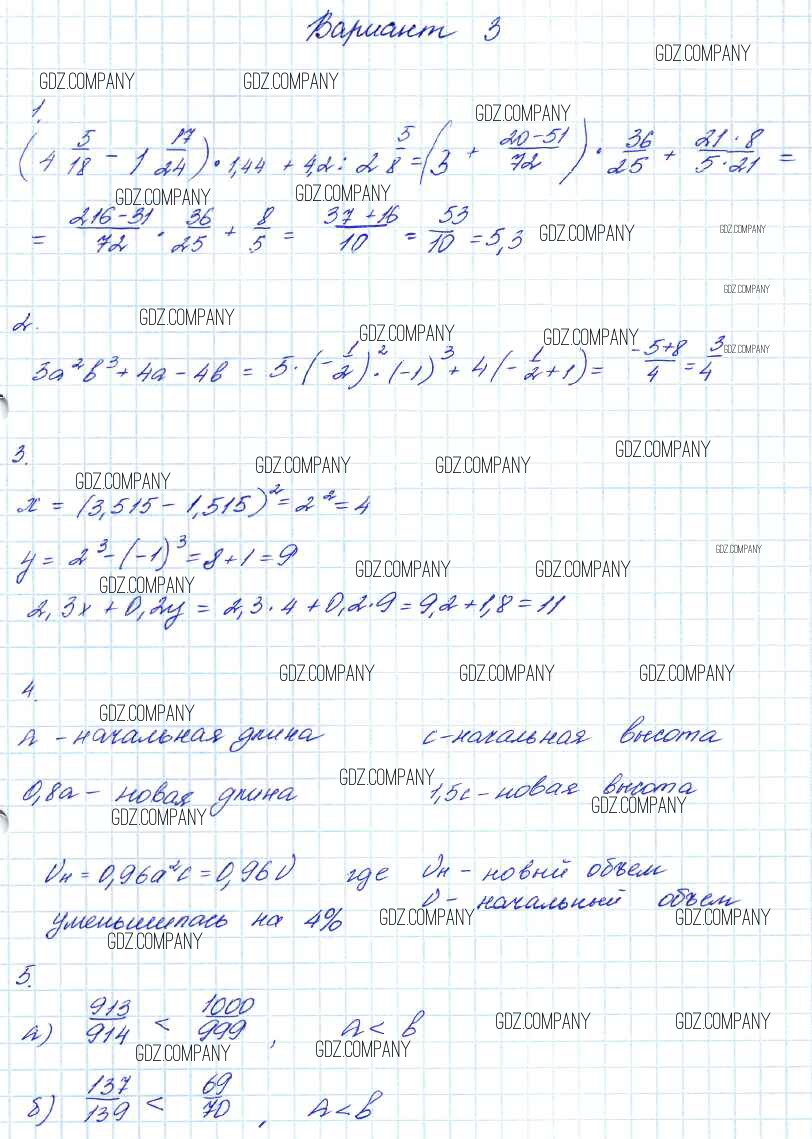 Вариант 3
GDZ.COMPANY
GDZ.COMPANY GDZ.COMPANY
1.
GDZ.COMPANY
(4 5/18 - 1 17/24) · 1,44 + 4,2 : 2 5/8 = (3 + 20-51/72) · 36/25 + 21·8/5·21 =
GDZ.COMPANY GDZ.COMPANY
= 216-31/72 · 36/25 + 8/5 = 37+16/10 = 53/10 = 5,3 GDZ.COMPANY GDZ.COMPANY
GDZ.COMPANY
2.
GDZ.COMPANY
GDZ.COMPANY GDZ.COMPANY GDZ.COMPANY
5a²b³ + 4a - 4b = 5·(-1/2)²·(-1)³ + 4(-1/2+1) = -5+8/4 = 3/4
3.
GDZ.COMPANY GDZ.COMPANY GDZ.COMPANY
GDZ.COMPANY
x = (3,515 - 1,515)² = 2² = 4
y = 2³ - (-1)³ = 8 + 1 = 9
GDZ.COMPANY
GDZ.COMPANY GDZ.COMPANY
GDZ.COMPANY
2,3x + 0,2y = 2,3·4 + 0,2·9 = 9,2 + 1,8 = 11
GDZ.COMPANY GDZ.COMPANY GDZ.COMPANY
4.
GDZ.COMPANY
a - начальная длина c - начальная высота
GDZ.COMPANY
0,8a - новая длина 1,5c - новая высота
GDZ.COMPANY GDZ.COMPANY
Vн = 0,96a²c = 0,96V где Vн - новый объем
V - начальный объем
уменьшилась на 4% GDZ.COMPANY GDZ.COMPANY
GDZ.COMPANY
5.
а) 913/914 < 1000/999, a < b GDZ.COMPANY GDZ.COMPANY
GDZ.COMPANY GDZ.COMPANY
б) 137/139 < 69/70, a < b